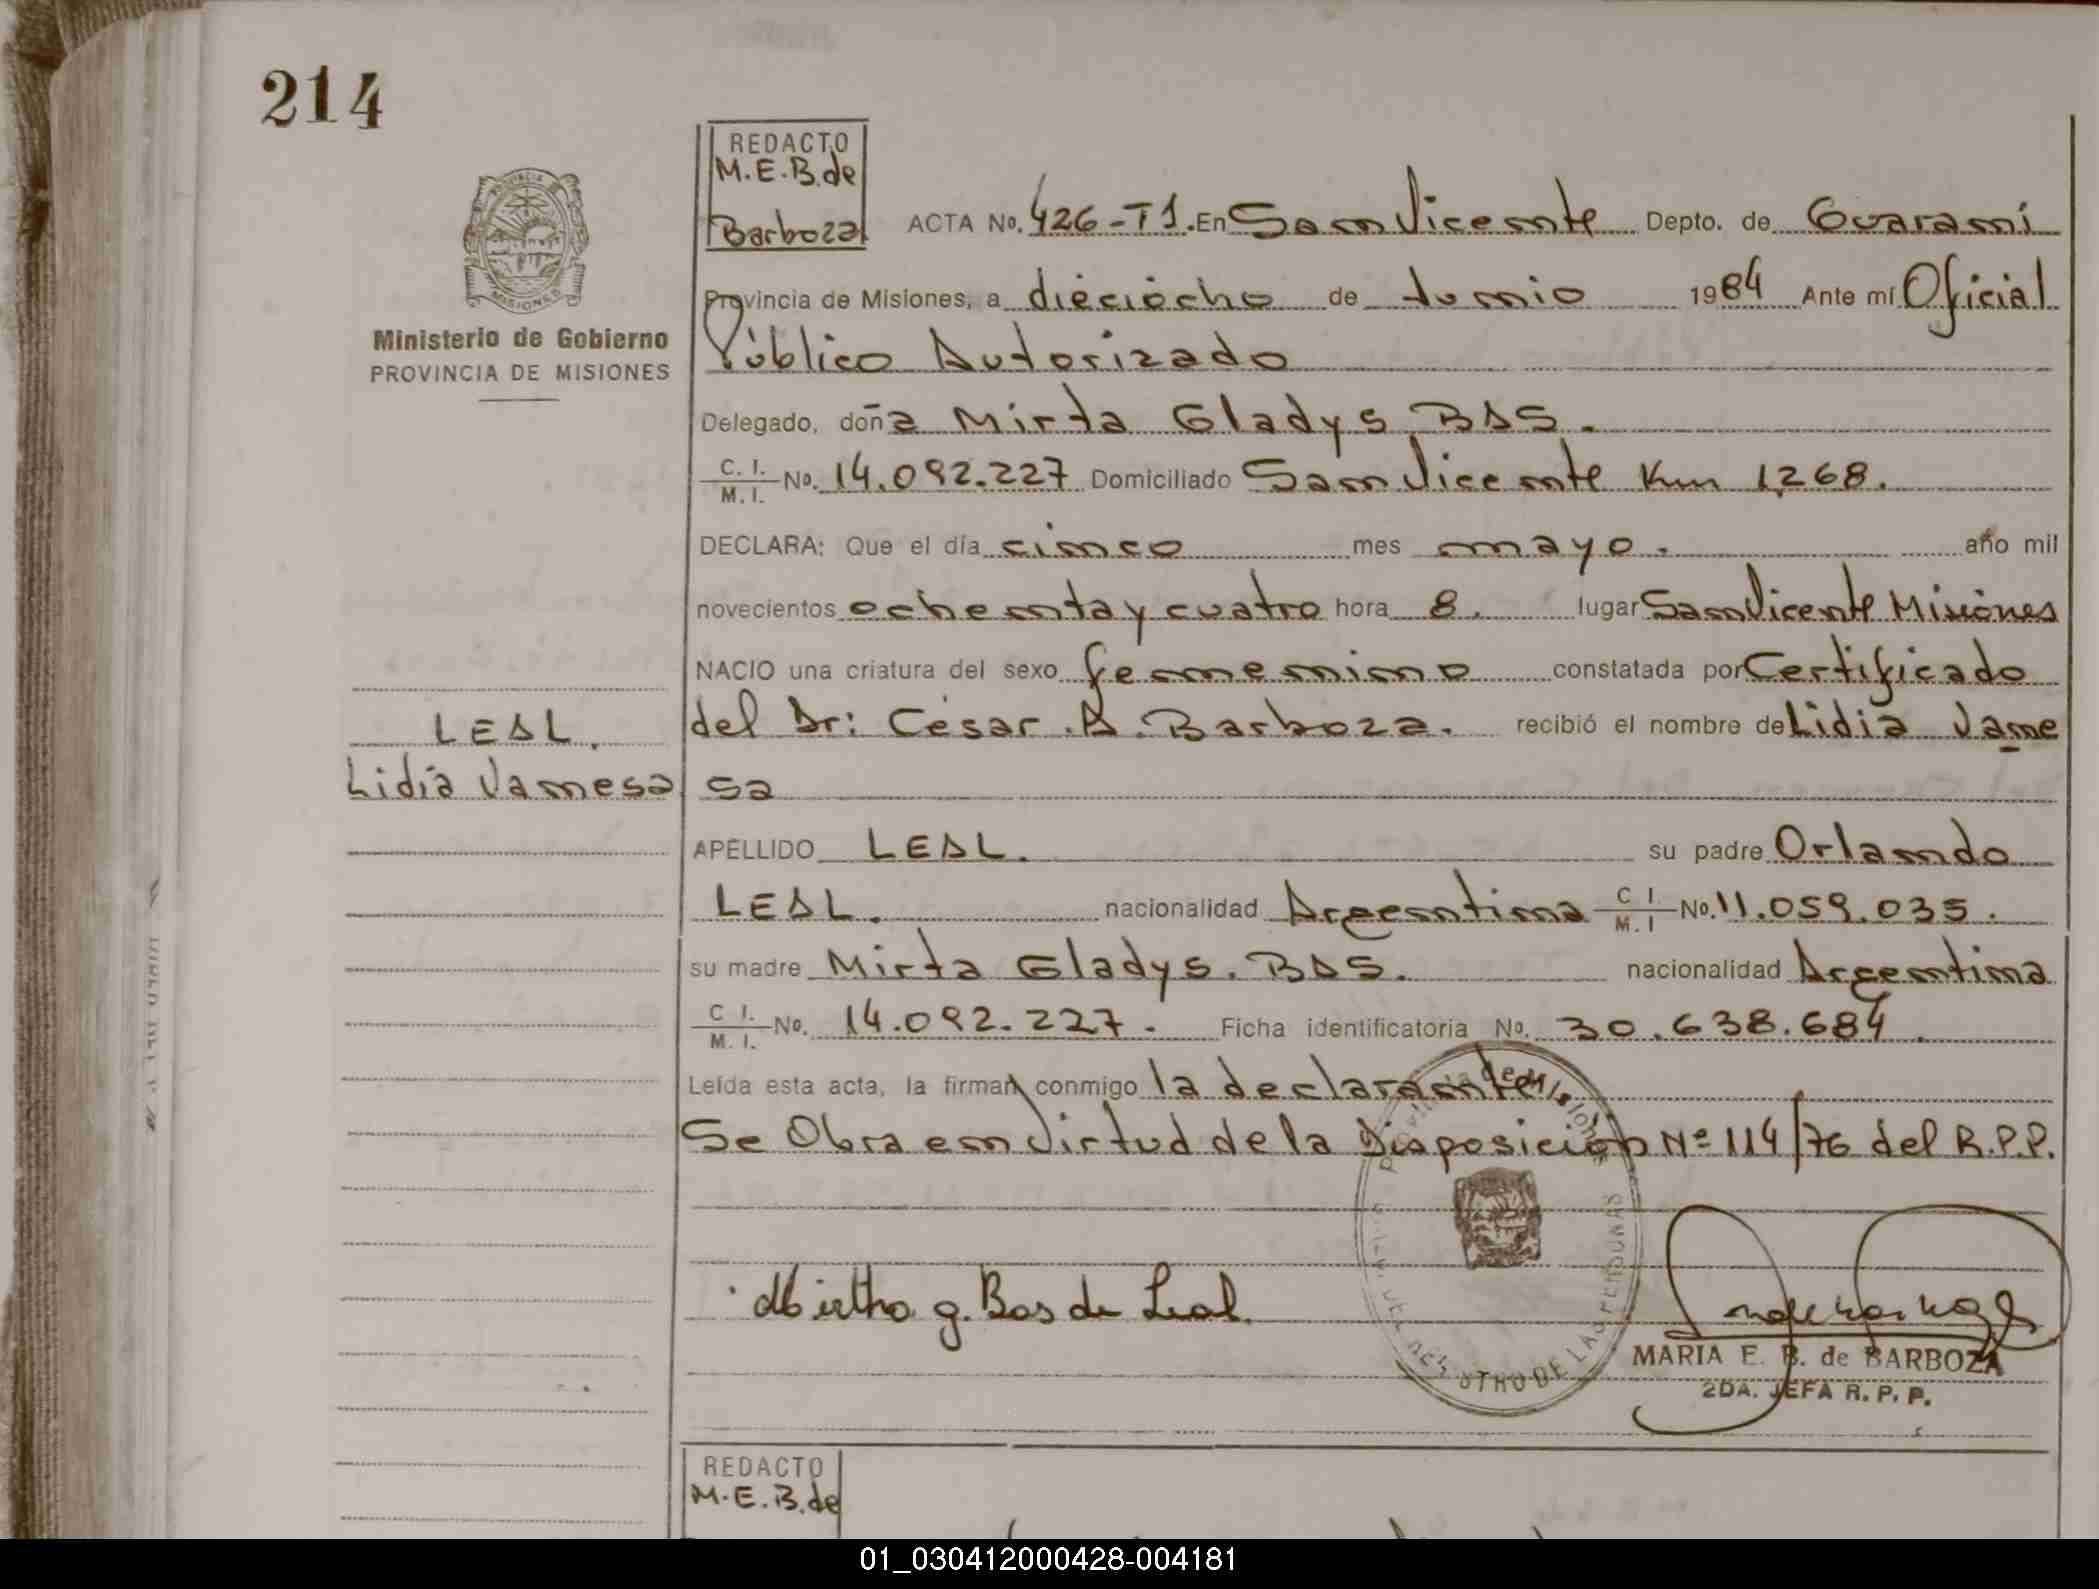 214
REDACTO
M.E.B. de
Barboza
ACTA No. 426-T1. En San Vicente Depto. de Guaraní
Provincia de Misiones, a dieciocho de Junio 1984 Ante mí Oficial
Público Autorizado
Ministerio de Gobierno
PROVINCIA DE MISIONES
Delegado, doña Mirta Gladys BAS.
C. I. / M. I. No. 14.092.227 Domiciliado San Vicente Km 1,268.
DECLARA: Que el día cinco mes mayo. año mil
novecientos ochenta y cuatro hora 8. lugar San Vicente Misiones
NACIO una criatura del sexo femenino constatada por Certificado
del Dr: César .A. Barboza. recibió el nombre de Lidia Vane
sa
LEAL.
Lidia Vanesa
APELLIDO LEAL. su padre Orlando
LEAL. nacionalidad Argentina C I. / M. I No. 11.059.035.
su madre Mirta Gladys. BAS. nacionalidad Argentina
C I. / M. I. No. 14.092.227. Ficha identificatoria No. 30.638.684.
Leída esta acta, la firman conmigo la declarante.
Se Obra en virtud de la Disposición Nº 114/76 del R.P.P.
Provincia de Misiones
REGISTRO DE LAS PERSONAS
Mirtha g. Bas de Leal.
MARIA E. B. de BARBOZA
2DA. JEFA R. P. P.
REDACTO
M.E.B. de
01_030412000428-004181